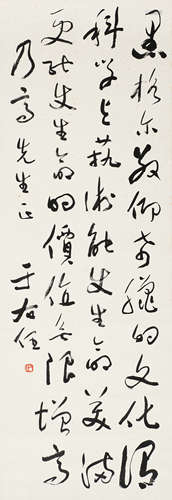 黑格尔敬仰希臘的文化謂
科学与藝術能使生命美滿
更能使生命的價值无限增高
乃高先生正
于右任